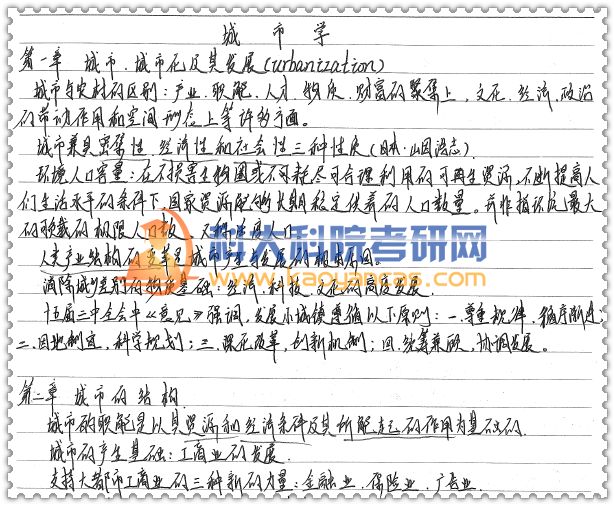 城市学
第一章 城市、城市化及其发展(urbanization)
城市与农村的区别:产业、职能、人才、物质、财富的聚集上,文化、经济、政治
的带动作用和空间形态上等许多方面。
城市兼具密集性、经济性和社会性三种性质(日本·山田浩志)
环境人口容量:在不损害生物圈或不耗尽可合理利用的可再生资源,不断提高人
们生活水平的条件下,国家资源配给的长期稳定供养的人口数量。并非指环境最大
的承载的极限人口数
科大科院考研网
www.kaoyancas.com
人类产业结构的变革是城市
消除城乡差别的物质基础:经济、科技、文化的高度发展.
十五届三中全会中《意见》强调,发展小城镇遵循以下原则:一.尊重规律,循序渐进;
二.因地制宜,科学规划;三.深化改革,创新机制;四.统筹兼顾,协调发展。
第二章 城市的结构
城市的职能是以其资源和经济条件及其所能起的作用为基础的.
城市的产生基础:工商业的发展.
支持大都市工商业的三种新的力量:金融业、保险业、广告业.